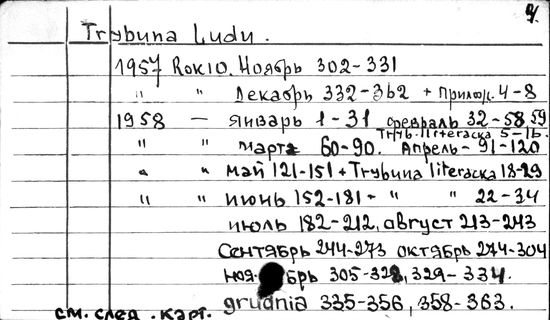 4.
Trybuna Ludu.
1957 Rok 10. Ноябрь 302-331
" " Декабрь 332-362 + прилож. 4-8
1958 — январь 1-31 февраль 32-58,59
Tryb. literacka 5-16.
" " марта 60-90. Апрель - 91-120
" " май 121-151 + Trybuna literacka 18-29
" " июнь 152-181 - " " 22-34
июль 182-212, август 213-243
Сентябрь 244-273 октябрь 274-304
ноябрь 305-328, 329-334.
grudnia 335-356, 358-363.
см. след. карт.